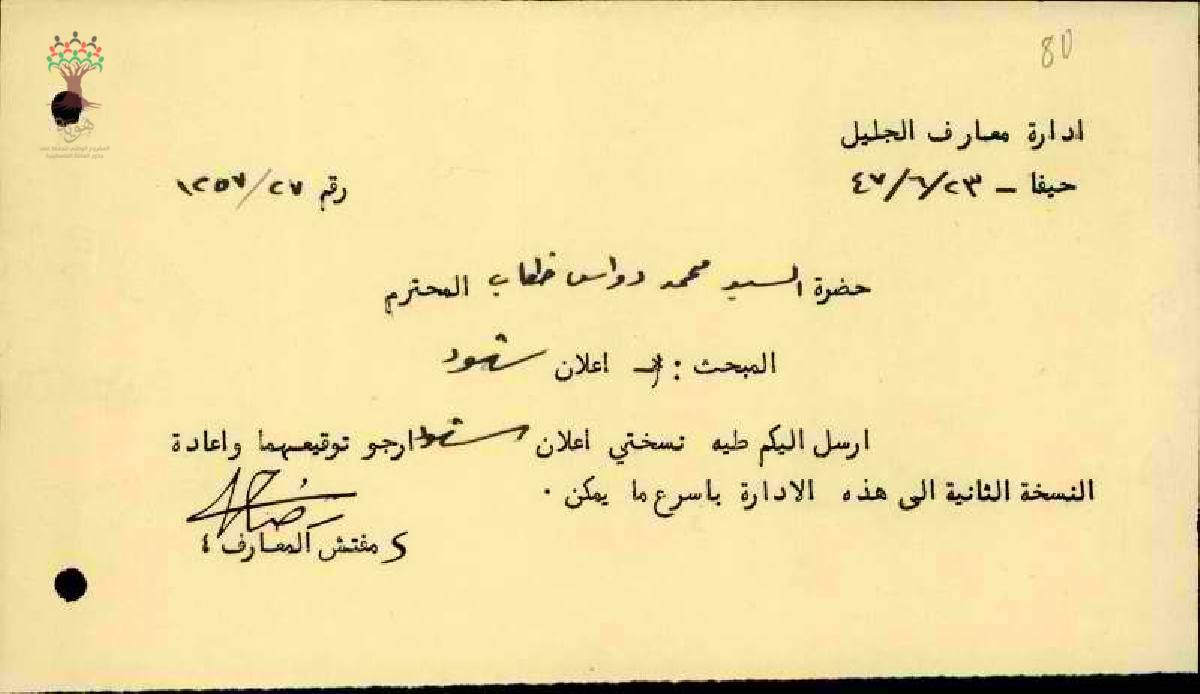 80
ادارة معارف الجليل
حيفا - ٤٧/٦/٢٣
رقم ١٢٥٧/٢٧
حضرة السيد محمد دواس خطاب المحترم
المبحث : اعلان
ارسل اليكم طيه نسختي اعلان ارجو توقيعهما واعادة
النسخة الثانية الى هذه الادارة باسرع ما يمكن .
مفتش المعارف
هوية